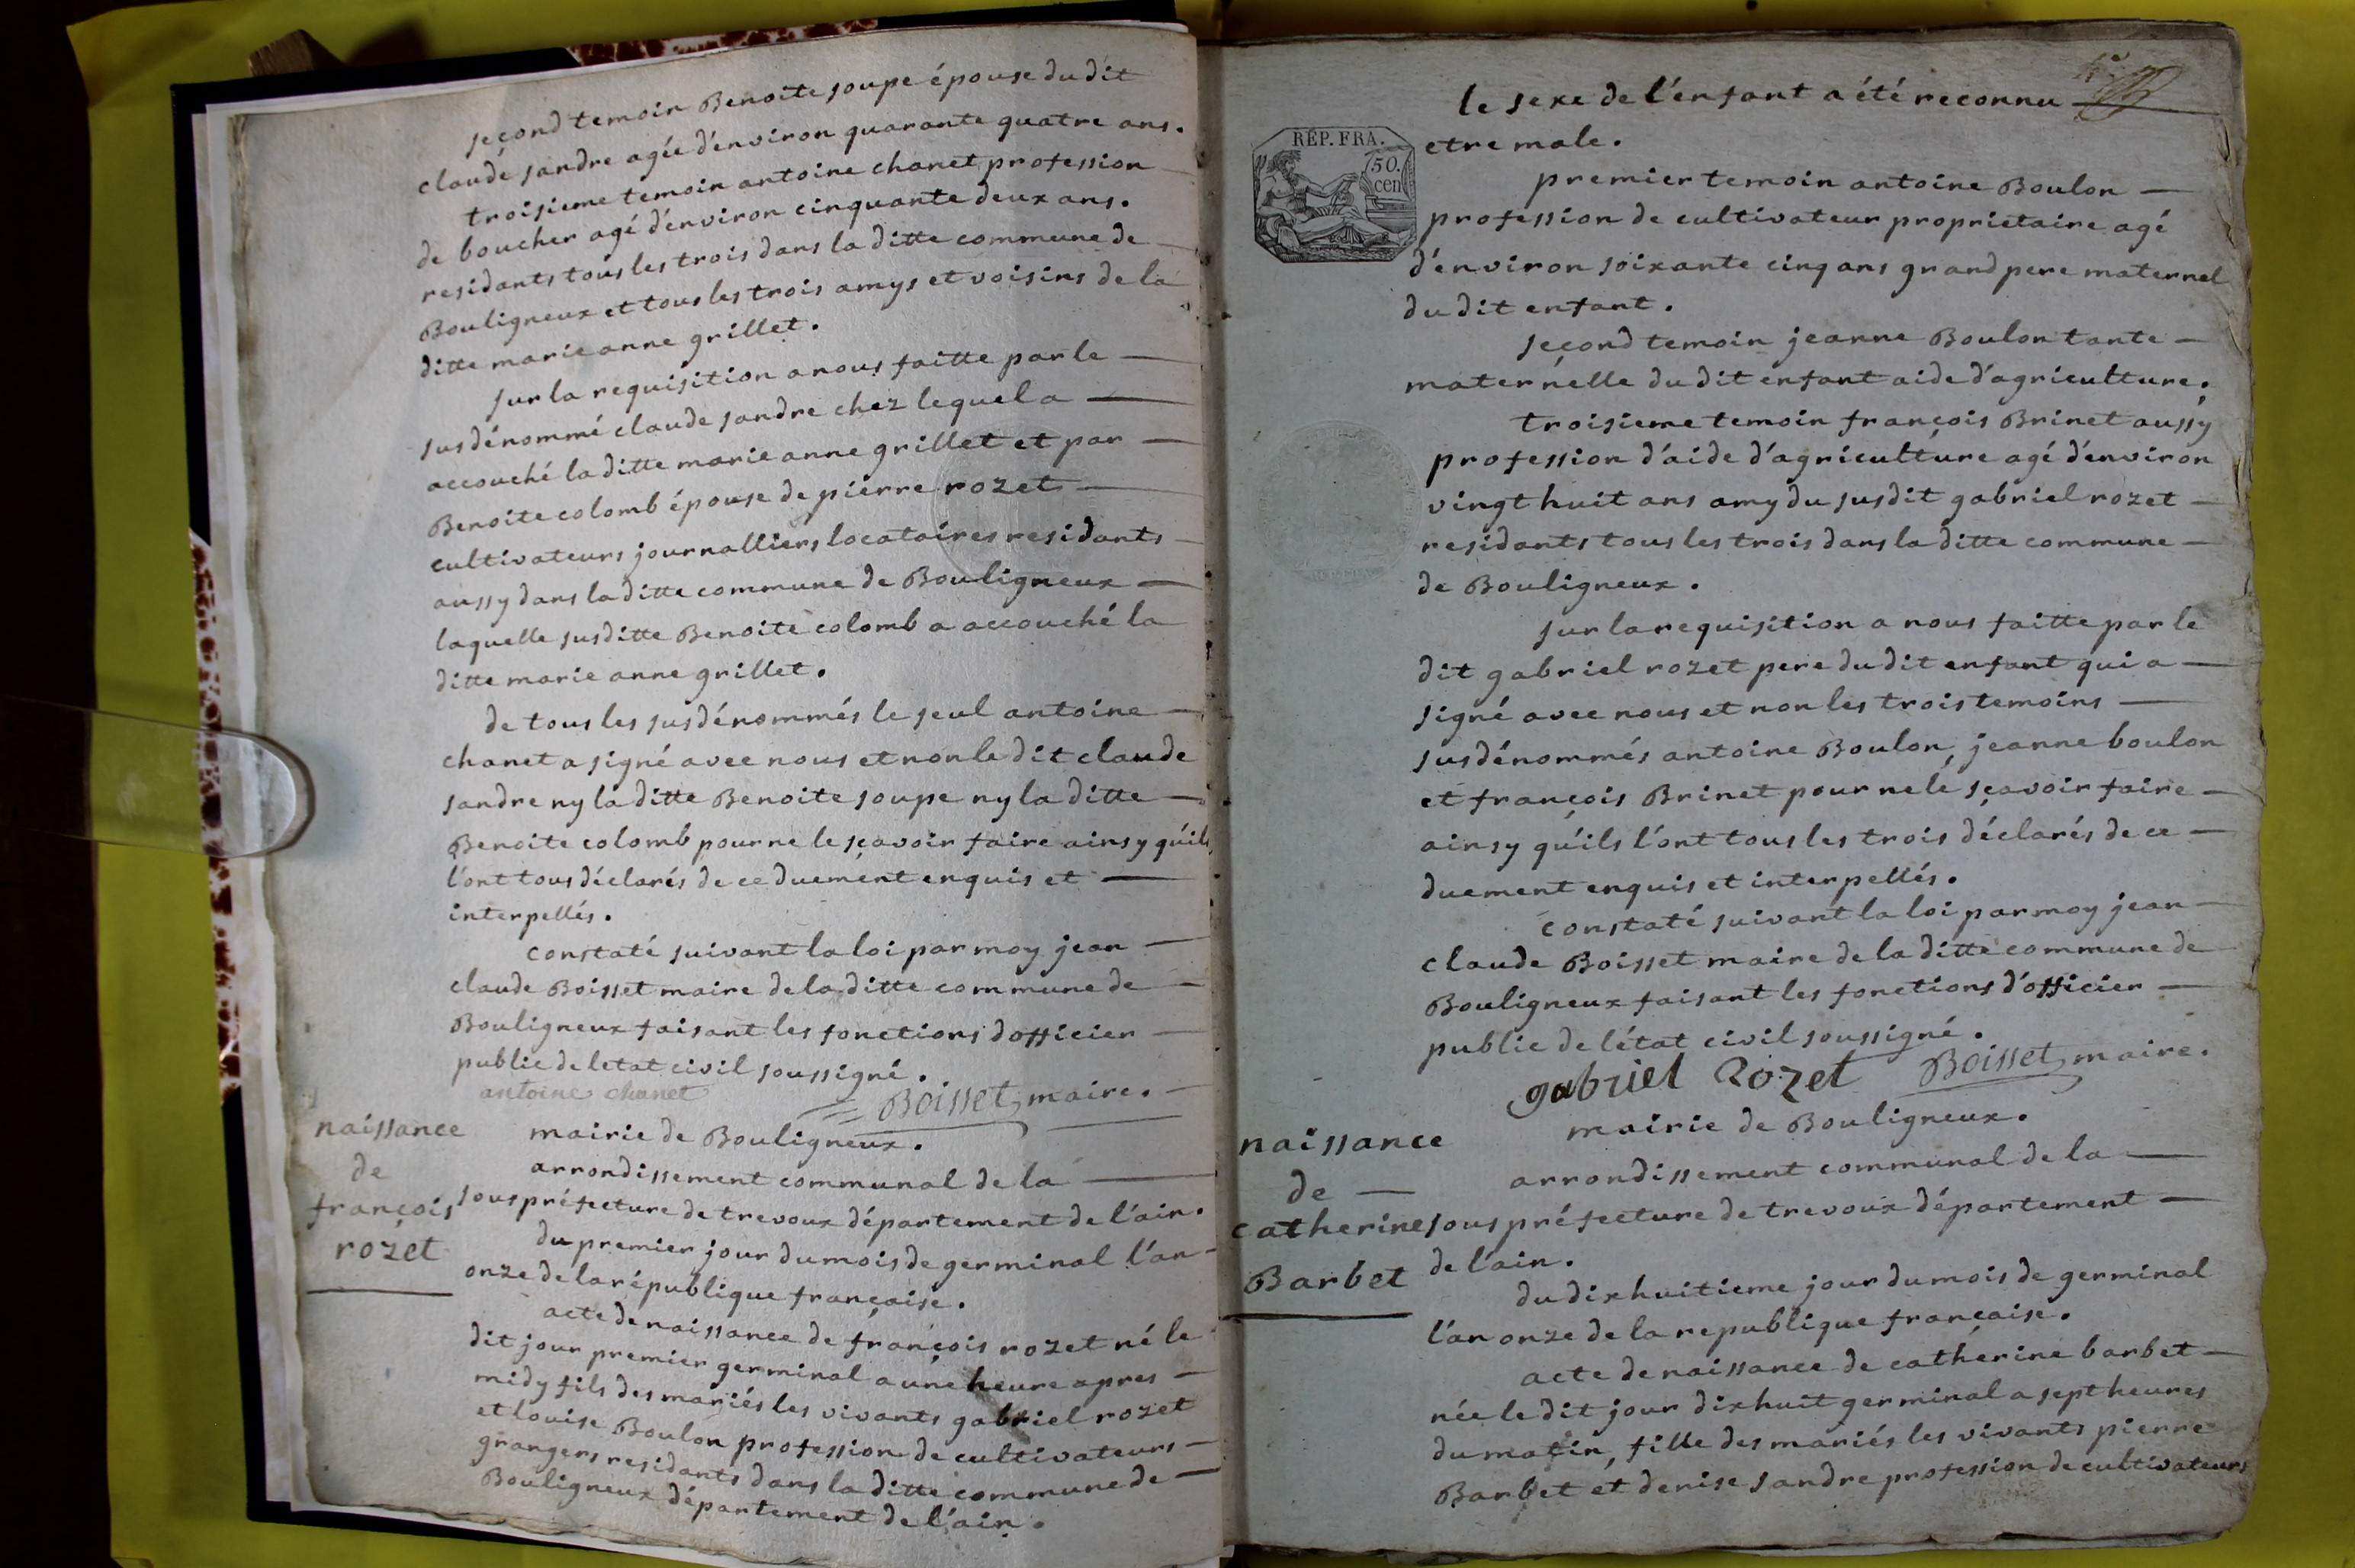 second temoin Benoite soupe épouse du dit
claude sandre agée d'environ quarante quatre ans.
troisieme temoin antoine chanet profession
de boucher agé d'environ cinquante deux ans.
residants tous les trois dans la ditte commune de
Bouligneux et tous les trois amys et voisins de la
ditte marie anne grillet.
sur la requisition a nous faitte par le
susdénommé claude sandre chez lequel a
accouché la ditte marie anne grillet et par
Benoite colomb épouse de pierre rozet
cultivateurs journalliers locataires residants
aussy dans la ditte commune de Bouligneux
laquelle susditte Benoite colomb a accouché la
ditte marie anne grillet.
de tous les susdénommés le seul antoine
chanet a signé avec nous et non le dit claude
sandre ny la ditte Benoite soupe ny la ditte
Benoite colomb pour ne le sçavoir faire ainsy qu'ils
l'ont tous déclarés de ce duement enquis et
interpellés.
constaté suivant la loi par moy jean
claude Boisset maire de la ditte commune de
Bouligneux faisant les fonctions d'officier
public de letat civil soussigné.
antoine chanet
Boisset maire.
naissance
de
françois
rozet
mairie de Bouligneux.
arrondissement communal de la
sous préfecture de trevoux département de l'ain.
du premier jour du mois de germinal l'an
onze de la république française.
acte de naissance de françois rozet né le
dit jour premier germinal a une heure apres
midy fils des mariés les vivants gabriel rozet
et louise Boulon profession de cultivateurs
grangers residants dans la ditte commune de
Bouligneux département de l'ain.
le sexe de l'enfant a été reconnu
etre male.
RÉP. FRA.
50.
cen
premier temoin antoine Boulon
profession de cultivateur proprietaire agé
d'environ soixante cinq ans grand pere maternel
du dit enfant.
second temoin jeanne Boulon tante
maternelle du dit enfant aide d'agriculture.
troisieme temoin françois Brinet aussy
profession d'aide d'agriculture agé d'environ
vingt huit ans amy du susdit gabriel rozet
residants tous les trois dans la ditte commune
de Bouligneux.
sur la requisition a nous faitte par le
dit gabriel rozet pere du dit enfant qui a
signé avec nous et non les trois temoins
susdénommés antoine Boulon, jeanne boulon
et françois Brinet pour ne le sçavoir faire
ainsy qu'ils l'ont tous les trois déclarés de ce
duement enquis et interpellés.
constaté suivant la loi par moy jean
claude Boisset maire de la ditte commune de
Bouligneux faisant les fonctions d'officier
public de l'état civil soussigné.
gabriel Rozet Boisset maire.
naissance
de
catherine
Barbet
mairie de Bouligneux.
arrondissement communal de la
sous préfecture de trevoux département
de l'ain.
du dixhuitieme jour du mois de germinal
l'an onze de la republique francaise.
acte de naissance de catherine barbet
née le dit jour dixhuit germinal a sept heures
du matin, fille des mariés les vivants pierre
Barbet et denise sandre profession de cultivateurs